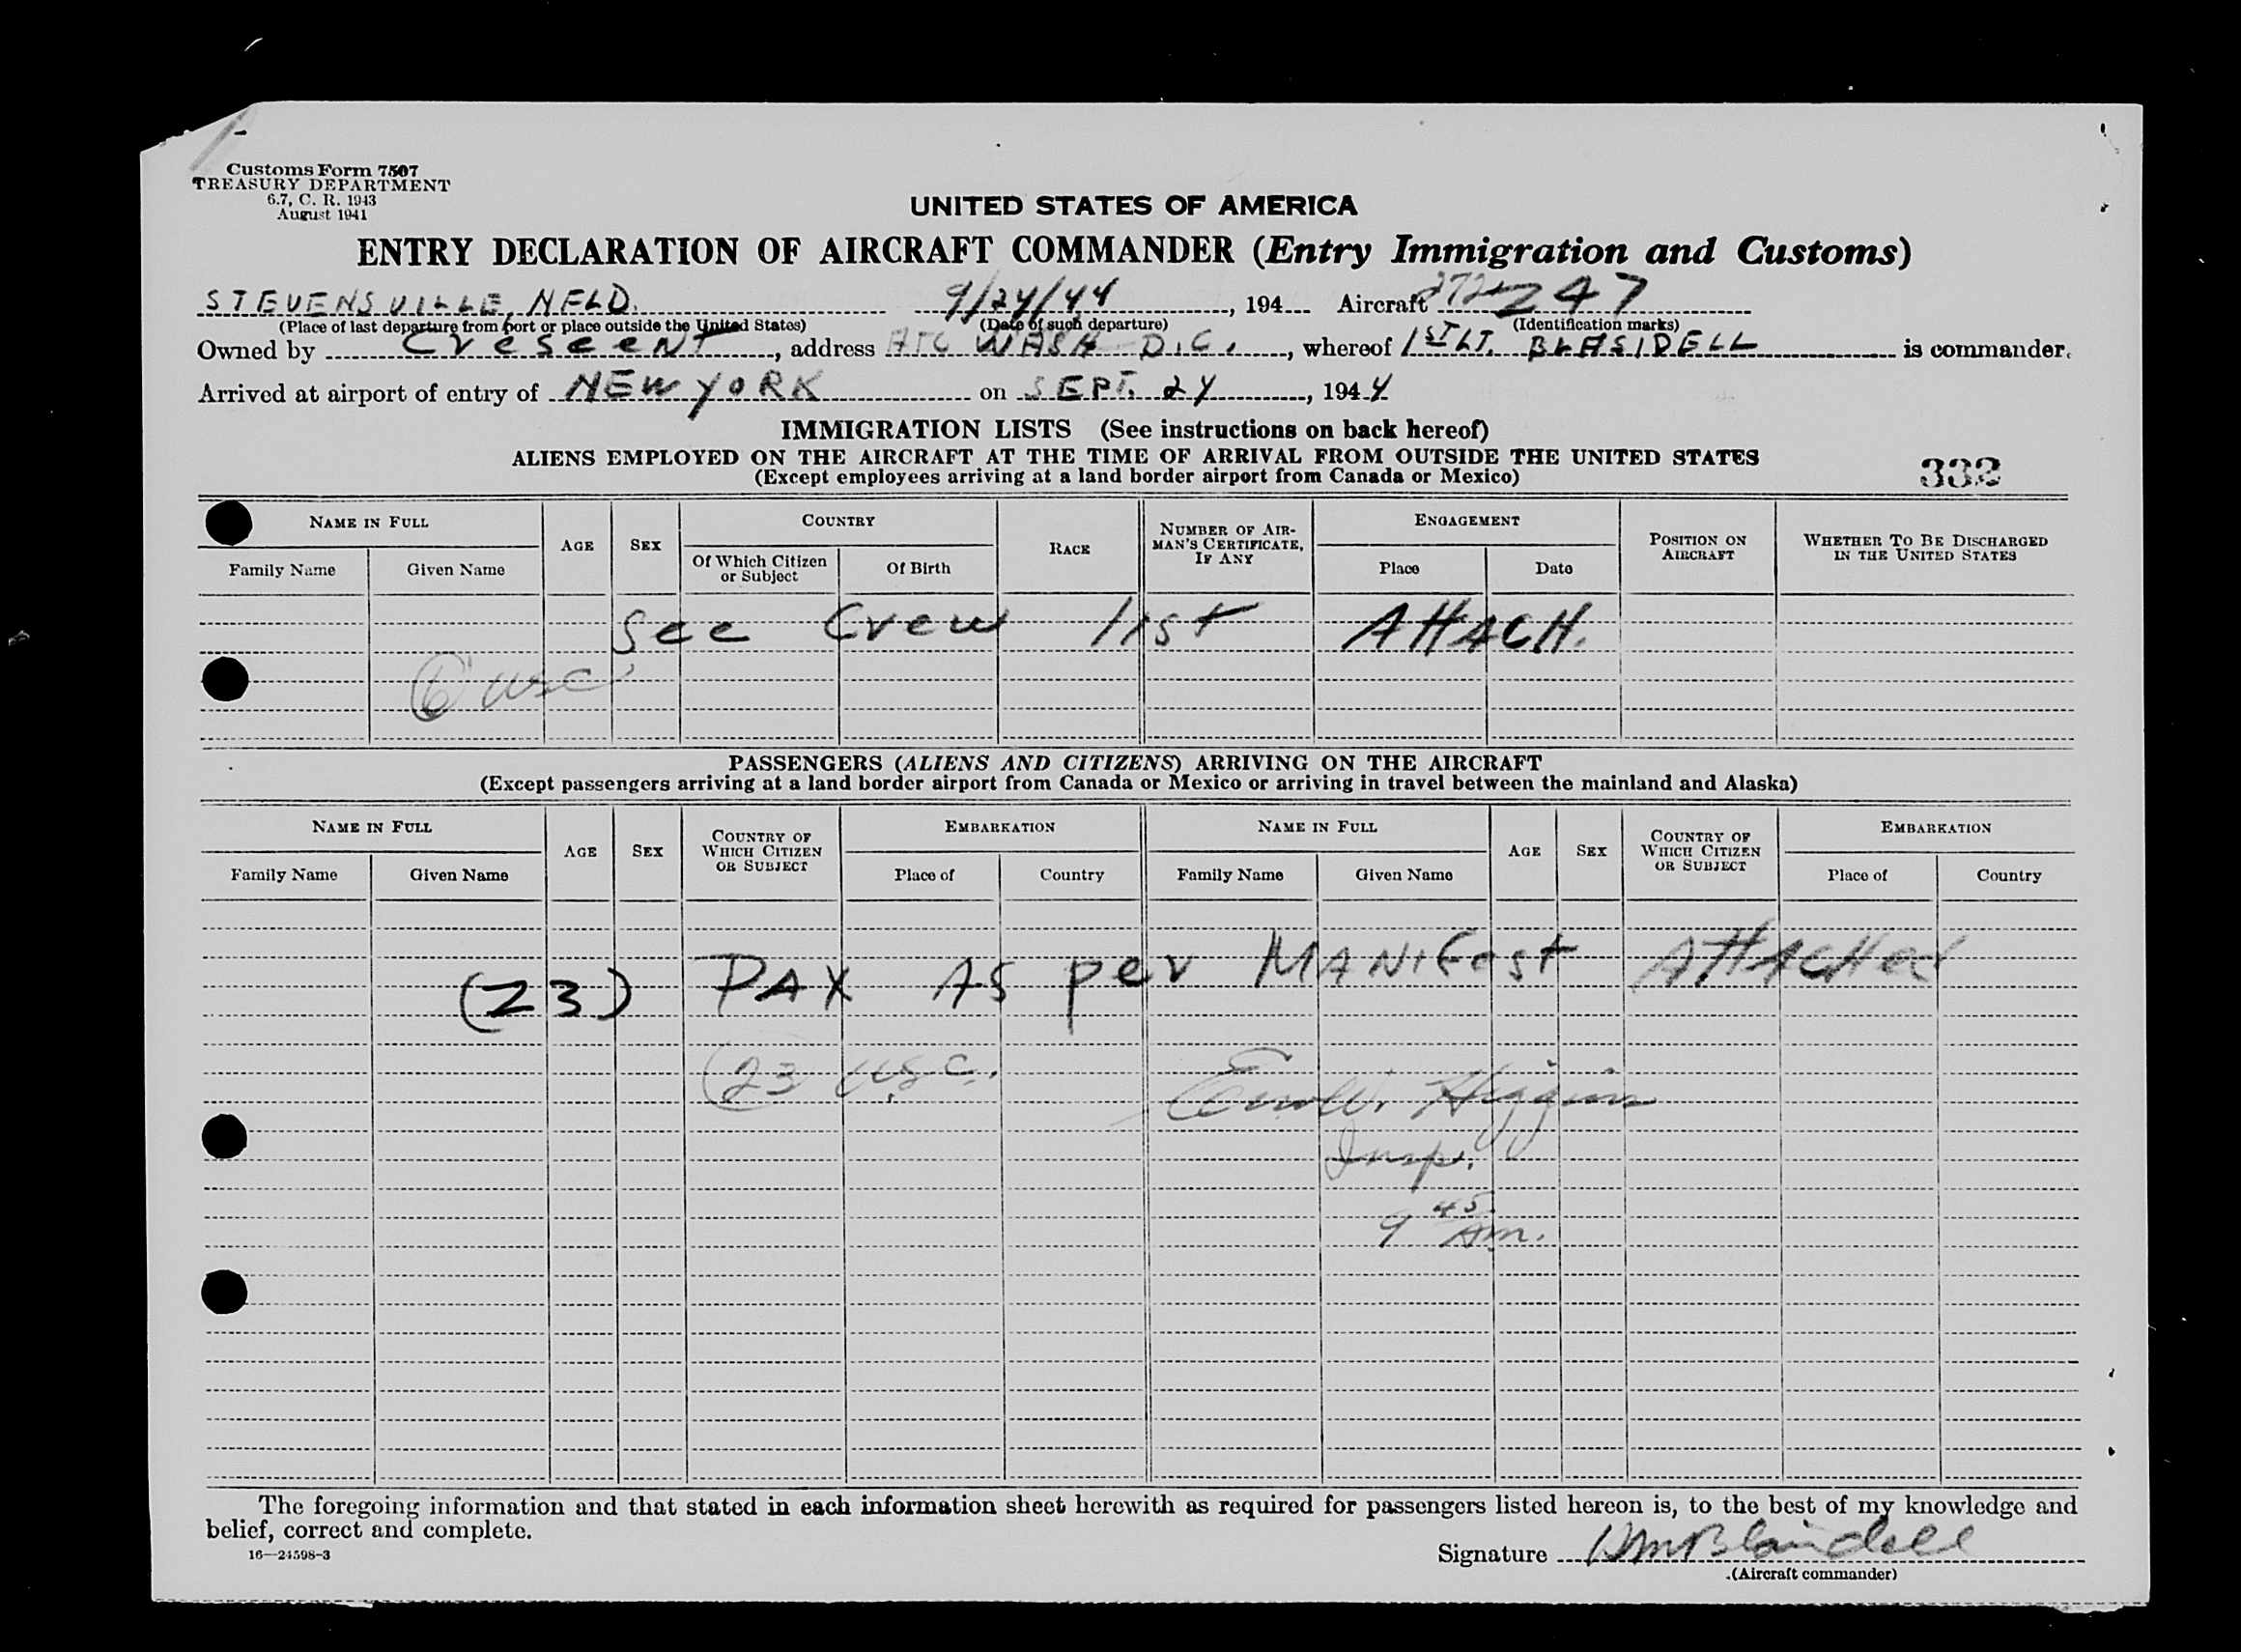 Customs Form 7507
TREASURY DEPARTMENT
6.7, C. R. 1943
August 1941
UNITED STATES OF AMERICA
ENTRY DECLARATION OF AIRCRAFT COMMANDER (Entry Immigration and Customs)
STEVENSVILLE, NFLD. 9/24/44, 194 Aircraft 272 247
(Place of last departure from port or place outside the United States) (Date of such departure) (Identification marks)
Owned by Crescent, address ATC WASH D.C., whereof 1ST LT. BLASIDELL is commander.
Arrived at airport of entry of NEW YORK on SEPT. 24, 1944
IMMIGRATION LISTS (See instructions on back hereof)
ALIENS EMPLOYED ON THE AIRCRAFT AT THE TIME OF ARRIVAL FROM OUTSIDE THE UNITED STATES
(Except employees arriving at a land border airport from Canada or Mexico)
332
NAME IN FULL AGE SEX COUNTRY RACE NUMBER OF AIRMAN'S CERTIFICATE, IF ANY ENGAGEMENT POSITION ON AIRCRAFT WHETHER TO BE DISCHARGED IN THE UNITED STATES
Family Name Given Name Of Which Citizen or Subject Of Birth Place Date
See Crew list AttACH.
6 usc
PASSENGERS (ALIENS AND CITIZENS) ARRIVING ON THE AIRCRAFT
(Except passengers arriving at a land border airport from Canada or Mexico or arriving in travel between the mainland and Alaska)
NAME IN FULL AGE SEX COUNTRY OF WHICH CITIZEN OR SUBJECT EMBARKATION NAME IN FULL AGE SEX COUNTRY OF WHICH CITIZEN OR SUBJECT EMBARKATION
Family Name Given Name Place of Country Family Name Given Name Place of Country
(23) PAX AS per MANifest AttACHed
23 usc.
Higgins
Insp.
9 45 am.
The foregoing information and that stated in each information sheet herewith as required for passengers listed hereon is, to the best of my knowledge and
belief, correct and complete.
16—24598-3
Signature Wm Blaisdell
(Aircraft commander)